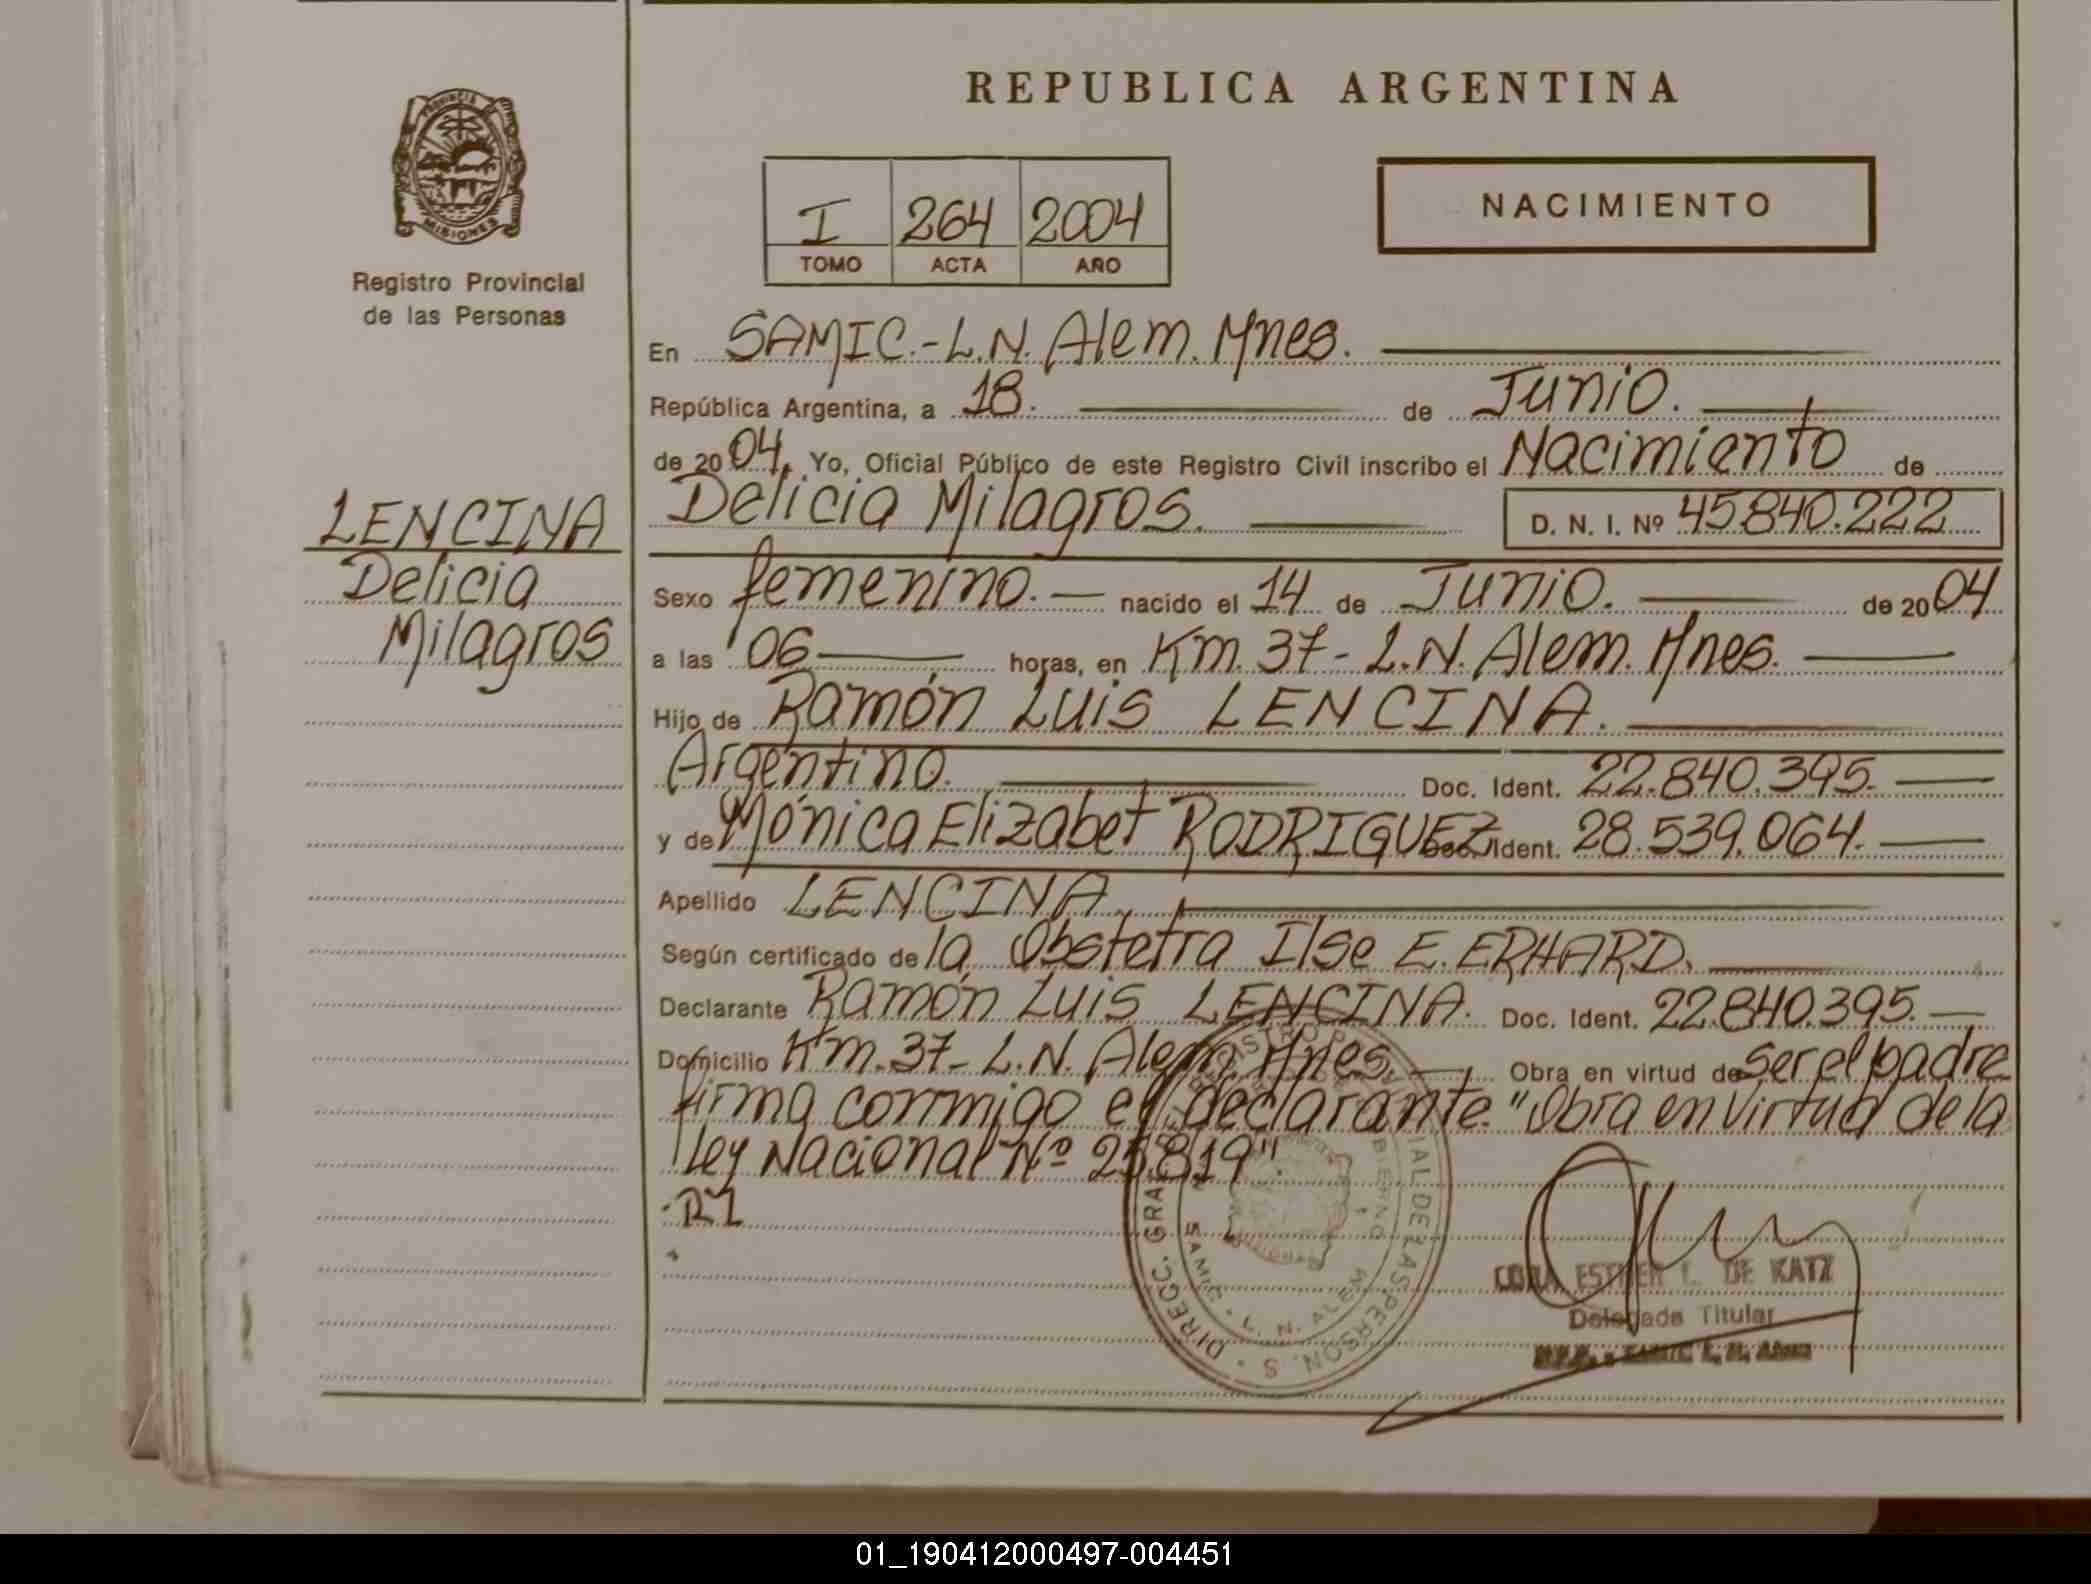 REPUBLICA ARGENTINA
PROVINCIA DE
MISIONES
Registro Provincial
de las Personas
I 264 2004
TOMO ACTA AÑO
NACIMIENTO
En SAMIC.-L.N. Alem. Mnes.
República Argentina, a 18. de Junio.
de 2004. Yo, Oficial Público de este Registro Civil inscribo el Nacimiento de
Delicia Milagros. D. N. I. Nº 45.840.222
LENCINA
Delicia
Milagros
Sexo femenino. nacido el 14 de Junio. de 2004
a las 06 horas, en Km. 37-L.N. Alem. Mnes.
Hijo de Ramón Luis LENCINA.
Argentino. Doc. Ident. 22.840.395.
y de Mónica Elizabet RODRIGUEZ Doc. Ident. 28.539.064.
Apellido LENCINA.
Según certificado de la Obstetra Ilse E. ERHARD.
Declarante Ramón Luis LENCINA. Doc. Ident. 22.840.395.
Domicilio Km. 37-L.N. Alem. Mnes. Obra en virtud de ser el padre
firma conmigo el declarante. "Obra en virtud de la
ley Nacional Nº 25819".
DIRECC. GRAL. DEL REGISTRO PROVINCIAL DE LAS PERSON. S
SAMIC - L. N. ALEM
ESTHER L. DE KATZ
Delegada Titular
01_190412000497-004451